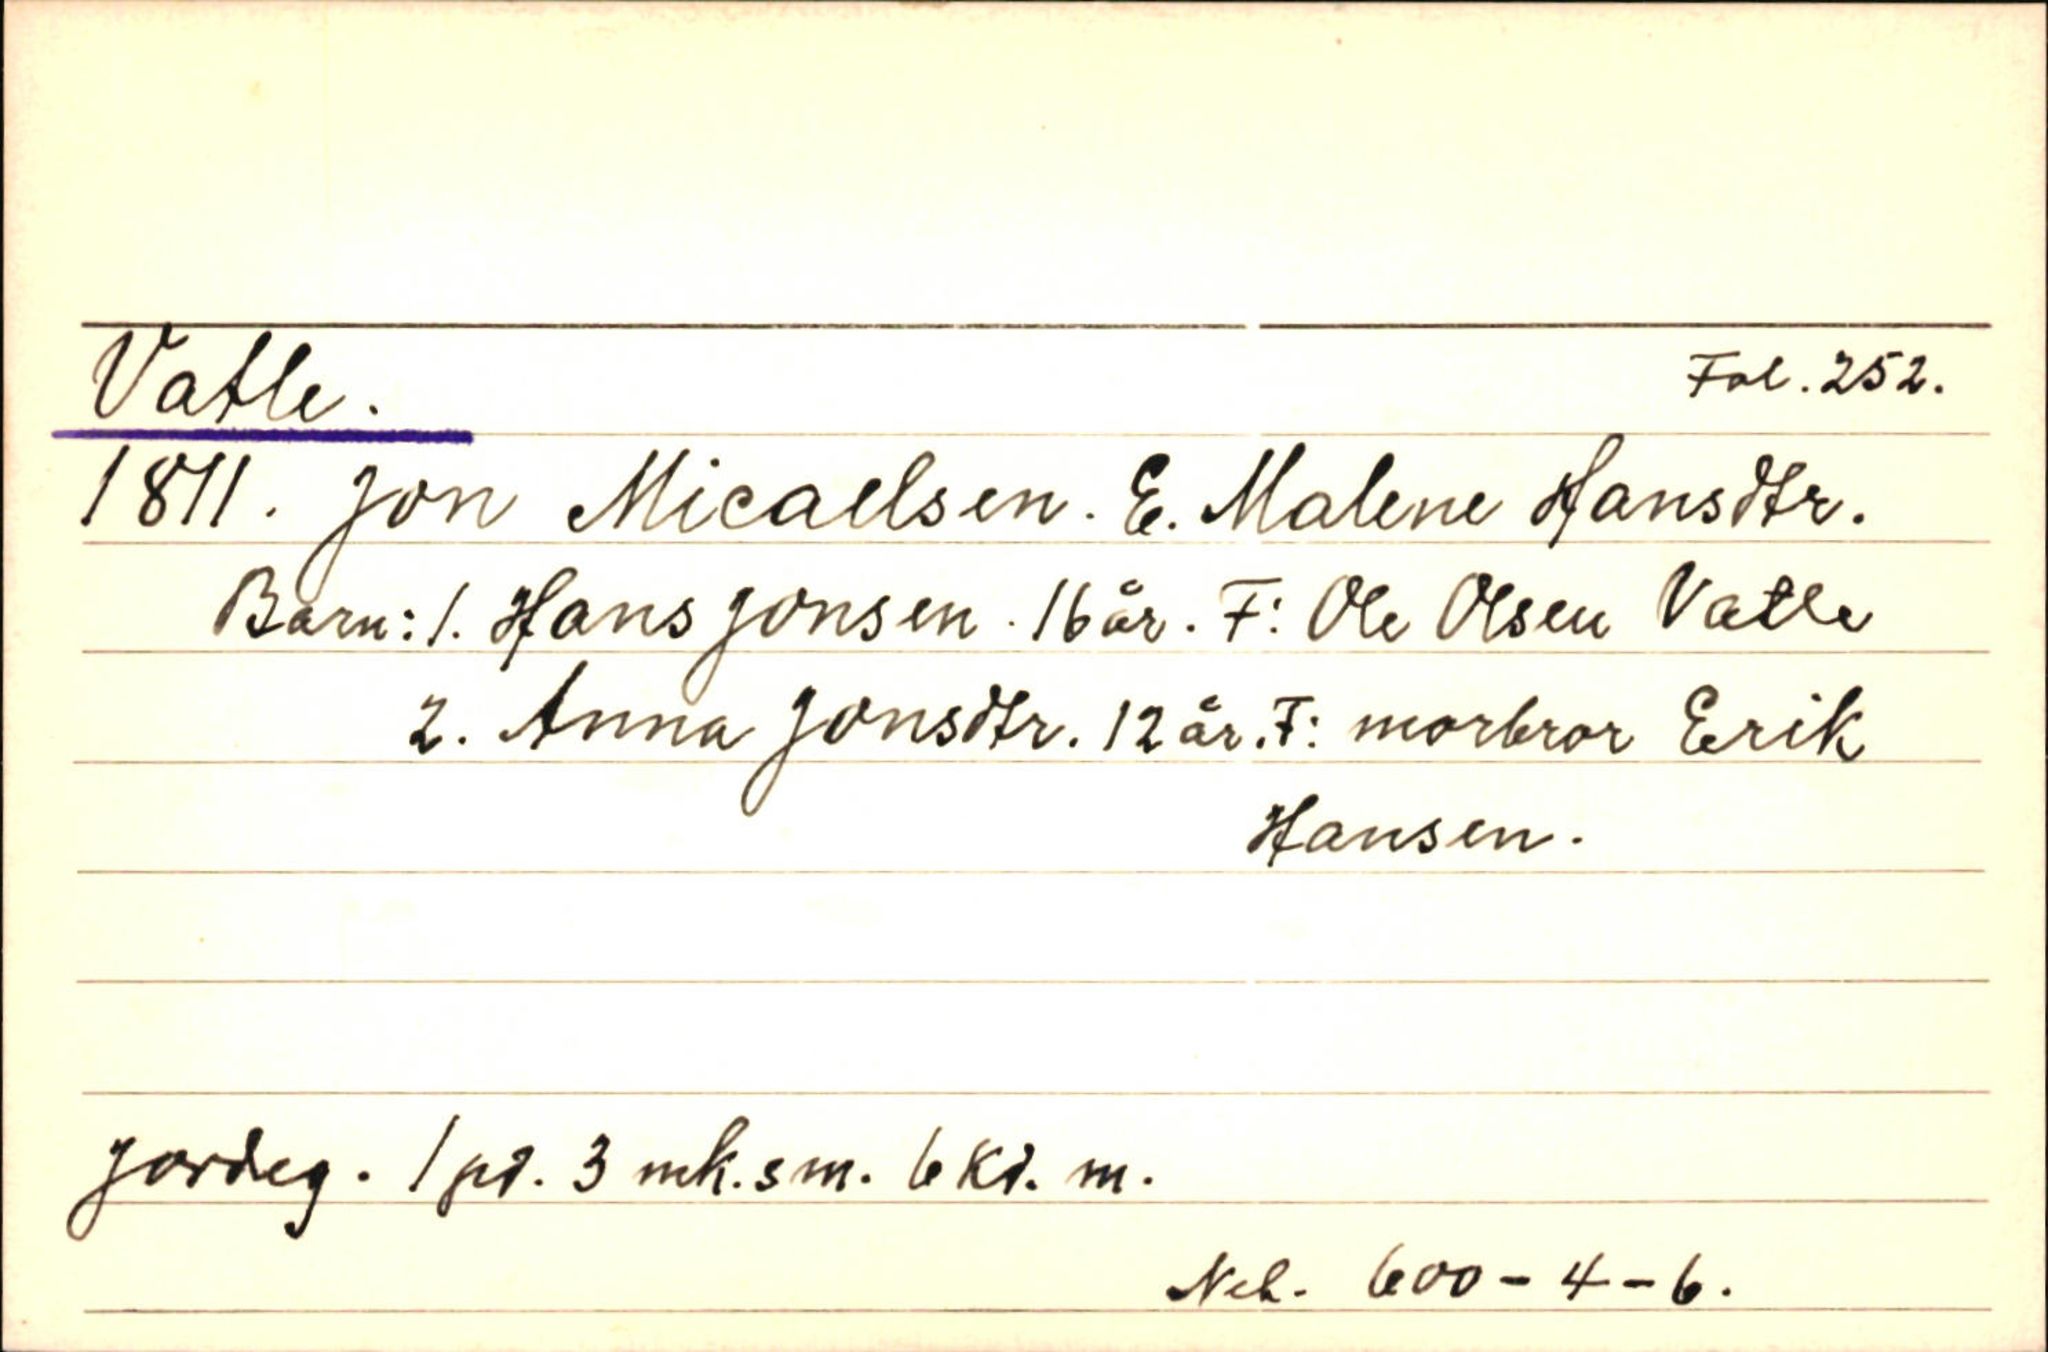 Vatle.
Fol. 252.
1811. Jon Micaelsen. E. Malene Hansdtr.
Barn: 1. Hans Jonsen. 16 år. F: Ole Olsen Vatle
2. Anna Jonsdtr. 12 år. F: morbror Erik
Hansen.
Jordeg. 1 pd. 3 mk. sm. 6 Kd. m.
Neh. 600-4-6.